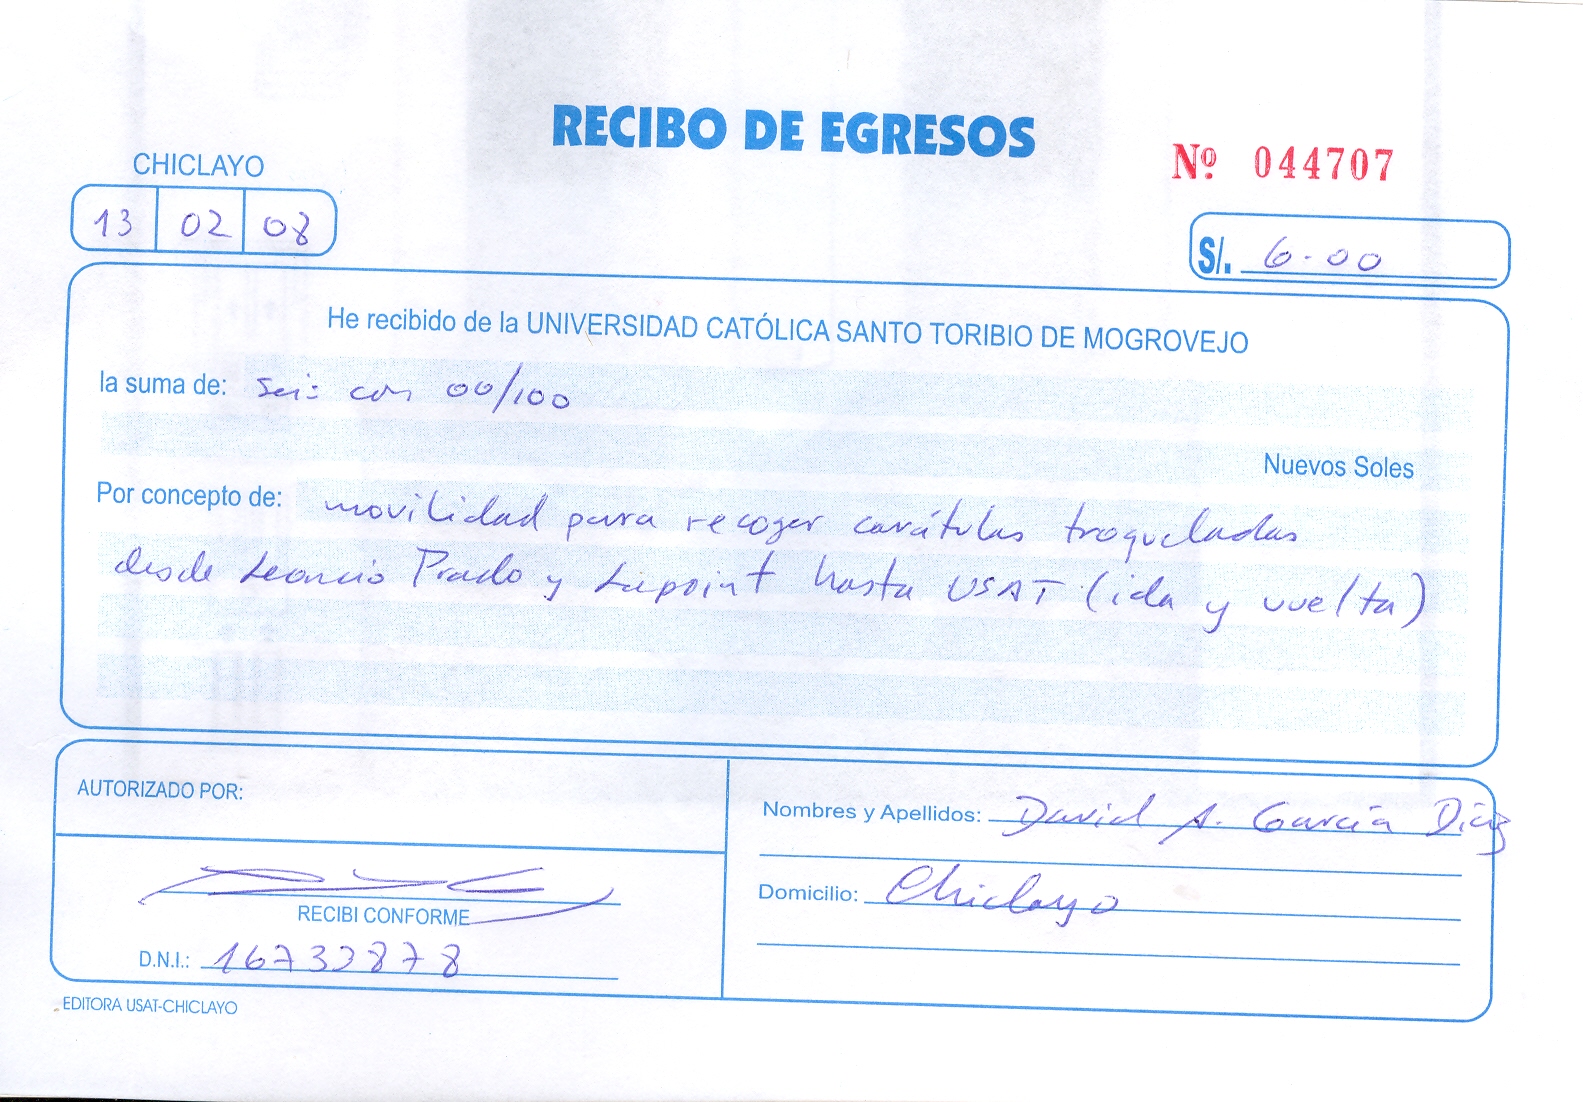 RECIBO DE EGRESOS
Nº 044707
CHICLAYO
13 02 08
S/. 6.00
He recibido de la UNIVERSIDAD CATÓLICA SANTO TORIBIO DE MOGROVEJO
la suma de: seis con 00/100
Nuevos Soles
Por concepto de: movilidad para recoger carátulas troqueladas
desde Leoncio Prado y Lupoint hasta USAT (ida y vuelta)
AUTORIZADO POR:
RECIBI CONFORME
D.N.I.: 16733878
Nombres y Apellidos: David A. García Díaz
Domicilio: Chiclayo
EDITORA USAT-CHICLAYO